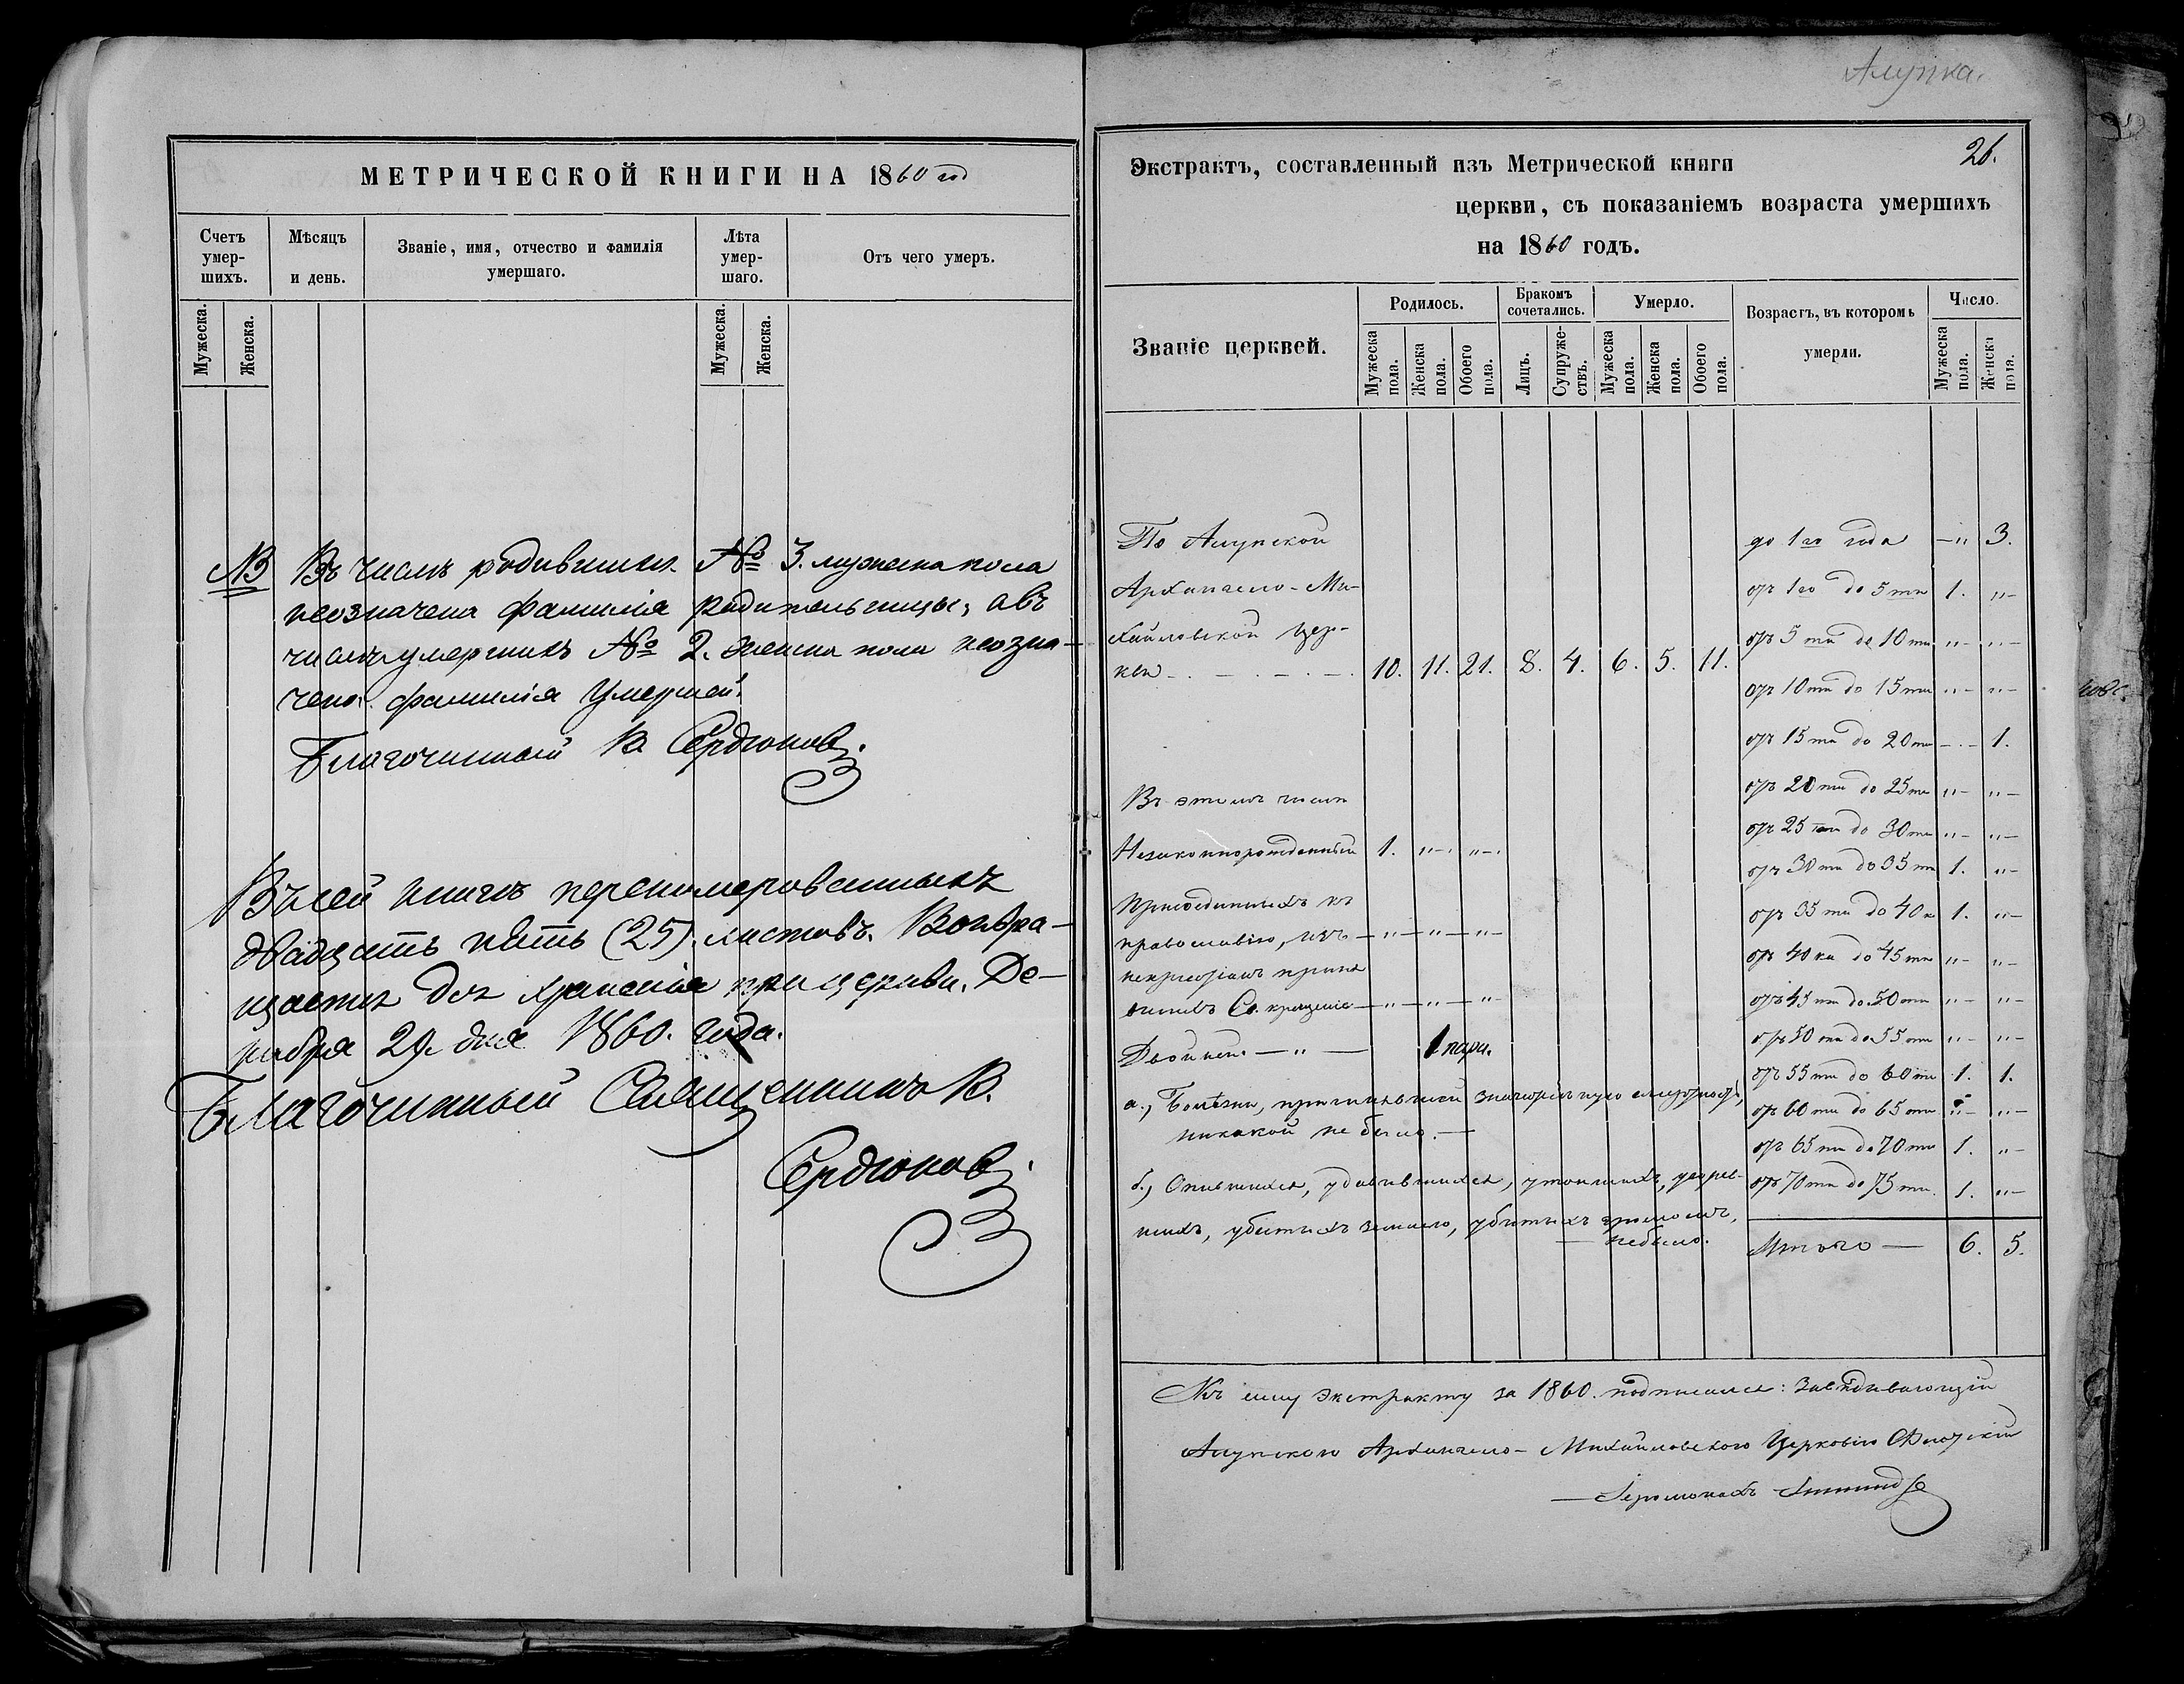 МЕТРИЧЕСКОЙ КНИГИ НА 1860 год
Счетъ умер-шихъ.
Мѣсяцъ и день.
Званіе, имя, отчество и фамилія умершаго.
Лѣта умер-шаго.
Отъ чего умеръ.
Мужеска. Женска.
Мужеска. Женска.
NB Въ числѣ родившихъ № 3. мужеска пола
неозначена фамилія родительницы, авъ
числѣ умершихъ № 2. женска пола неозна-
чена фамилія умершей.
Благочинный В Сердюковъ.
Въ сей книгѣ перенумерованныхъ
двадцать пять (25). листовъ. Возвра-
щается для храненія при церкви. Де-
кабря 29. дня 1860. года.
Благочинный Священникъ В.
Сердюковъ.
Алупка.
26.
Экстрактъ, составленный изъ Метрической книги
церкви, съ показаніемъ возраста умершихъ
на 1860 годъ.
Званіе церквей.
Родилось.
Бракомъ сочетались.
Умерло.
Возрастъ, въ которомъ умерли.
Число.
Мужеска пола. Женска пола. Обоего пола. Лицъ. Супруже-ствъ. Мужеска пола. Женска пола. Обоего пола. Мужеска пола. Женска пола.
По Алупской
Архангело-Ми-
хайловской цер-
кви - . - . - . - . 10. 11. 21. 8. 4. 6. 5. 11.
Въ этомъ числѣ
Незаконнорожденный 1. „-. „-.
Присоединенныхъ къ
православію, изъ — „ — „ — „ —
Св. крещеніе — „ — „ — „
Двойней. — „ — 1 пара.
а., Болѣзни, причинившей значительную смертность,
никакой не было. —
б., Опившихся, удавившихся, утонувшихъ,
убитыхъ землею, убитыхъ громомъ,
— небыло.
до 1го года — „ 3.
отъ 1го до 5ти 1. „ —
отъ 5ти до 10ти „ — „ —
отъ 10ти до 15ти „ — „ —
отъ 15ти до 20ти — . — 1.
отъ 20ти до 25ти „ — „ —
отъ 25ти до 30ти „ — „ —
отъ 30ти до 35ти 1. „ —
отъ 35ти до 40а 1. „ —
отъ 40ка до 45ти „ — „ —
отъ 45ти до 50ти „ — „ —
отъ 50ти до 55ти „ — „ —
отъ 55ти до 60ти 1. 1.
отъ 60ти до 65ти „ — „ —
отъ 65ти до 70ти 1. „ —
отъ 70ти до 75ти. 1. „ —
Итого — 6. 5.
Къ сему экстракту за 1860. подписался: Завѣдывающій
Алупскою Архангело-Михайловскою Церковію Флотскій
— Іеромонахъ